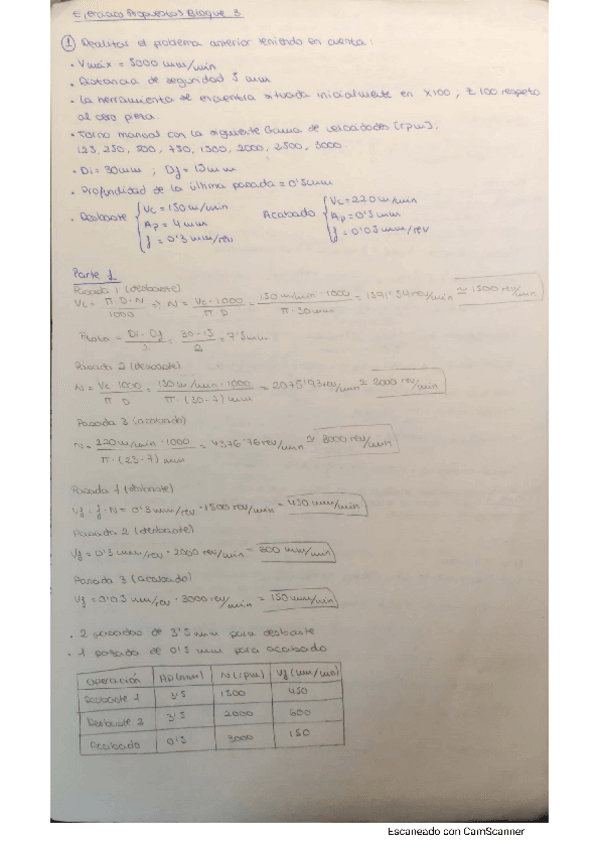 Ejercicios Propuestos Bloque 3
① Realitas el problema anterior teniendo en cuenta:
• Vmáx = 5000 mm/min
• Distancia de seguridad 5 mm
• La herramienta se encuentra situada inicialmente en X100; Z100 respeto
al cero pieza.
• Torno manual con la siguiente Gama de velocidades [rpm]:
125, 250, 500, 750, 1500, 2000, 2500, 3000.
• Di = 30mm ; Df = 15mm
• Profundidad de la última pasada = 0'5mm
• Desbaste { Vc = 150 m/min Acabado { Vc = 220 m/min
Ap = 4 mm Ap = 0'5 mm
f = 0'3 mm/rev f = 0'05 mm/rev
Parte 1
Pasada 1 (desbaste)
Vc = π·D·N / 1000 → N = Vc·1000 / π·D = 150 m/min·1000 / π·30mm = 1591'54 rev/min ≃ 1500 rev/min
Ptotal = Di - Df / 2 = 30-15 / 2 = 7'5mm
Pasada 2 (desbaste)
N = Vc·1000 / π·D = 150 m/min·1000 / π·(30-7) mm = 2075'93 rev/min ≃ 2000 rev/min
Pasada 3 (acabado)
N = 220 m/min·1000 / π·(23-7) mm = 4376'76 rev/min ≃ 3000 rev/min
Pasada 1 (desbaste)
Vf = f·N = 0'3 mm/rev · 1500 rev/min = 450 mm/min
Pasada 2 (desbaste)
Vf = 0'3 mm/rev · 2000 rev/min = 600 mm/min
Pasada 3 (acabado)
Vf = 0'05 mm/rev · 3000 rev/min = 150 mm/min
• 2 pasadas de 3'5 mm para desbaste
• 1 pasada de 0'5 mm para acabado
Operación | Ap (mm) | N (rpm) | Vf (mm/min)
Desbaste 1 | 3'5 | 1500 | 450
Desbaste 2 | 3'5 | 2000 | 600
Acabado | 0'5 | 3000 | 150
Escaneado con CamScanner